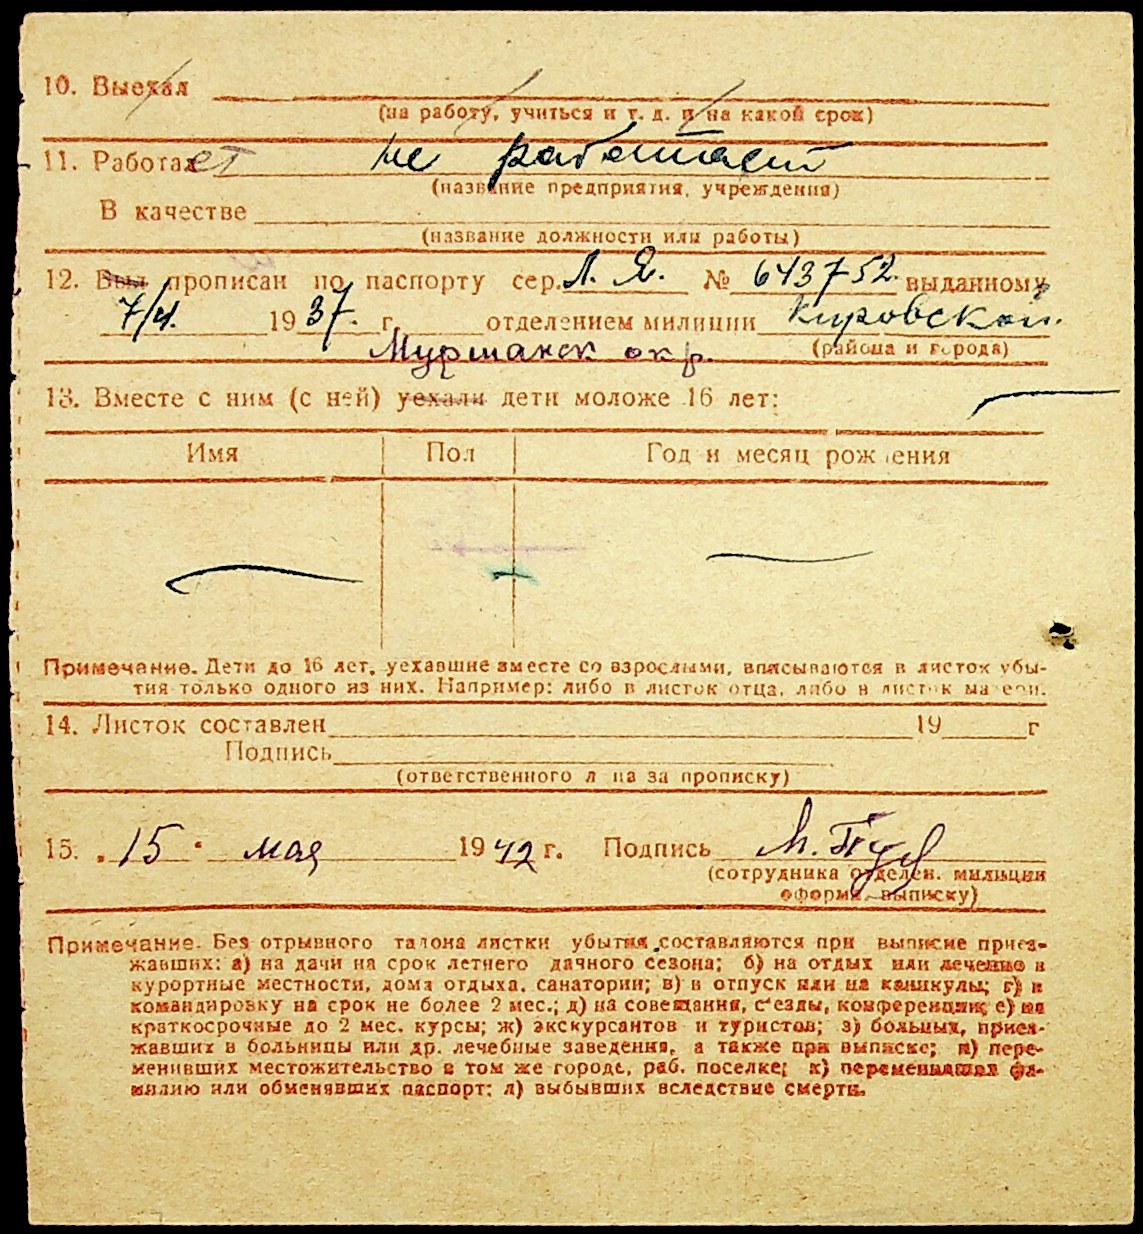 10. Выехал
(на работу, учиться и т. д. и на какой срок)
11. Работает не работает
(название предприятия, учреждения)
В качестве
(название должности или работы)
12. Был прописан по паспорту сер. Л. Я. № 643752. выданному
7/VI. 1937. г. отделением милиции Кировской.
Мурманск окр. (района и города)
13. Вместе с ним (с ней) уехали дети моложе 16 лет:
Имя Пол Год и месяц рождения
Примечание. Дети до 16 лет, уехавшие вместе со взрослыми, вписываются в листок убы-
тия только одного из них. Например: либо в листок отца, либо в листок матери.
14. Листок составлен 19 г
Подпись
(ответственного лица за прописку)
15. „15“ мая 1942 г. Подпись
(сотрудника отделен. милиции
оформ. выписку)
Примечание. Без отрывного талона листки убытия составляются при выписке приез-
жавших: а) на дачи на срок летнего дачного сезона; б) на отдых или лечение в
курортные местности, дома отдыха, санатории; в) в отпуск или на каникулы; г) в
командировку на срок не более 2 мес.; д) на совещания, съезды, конференции; е) на
краткосрочные до 2 мес. курсы; ж) экскурсантов и туристов; з) больных, приез-
жавших в больницы или др. лечебные заведения, а также при выписке; и) пере-
менивших местожительство в том же городе, раб. поселке; к) переменивших фа-
милию или обменявших паспорт; л) выбывших вследствие смерти.